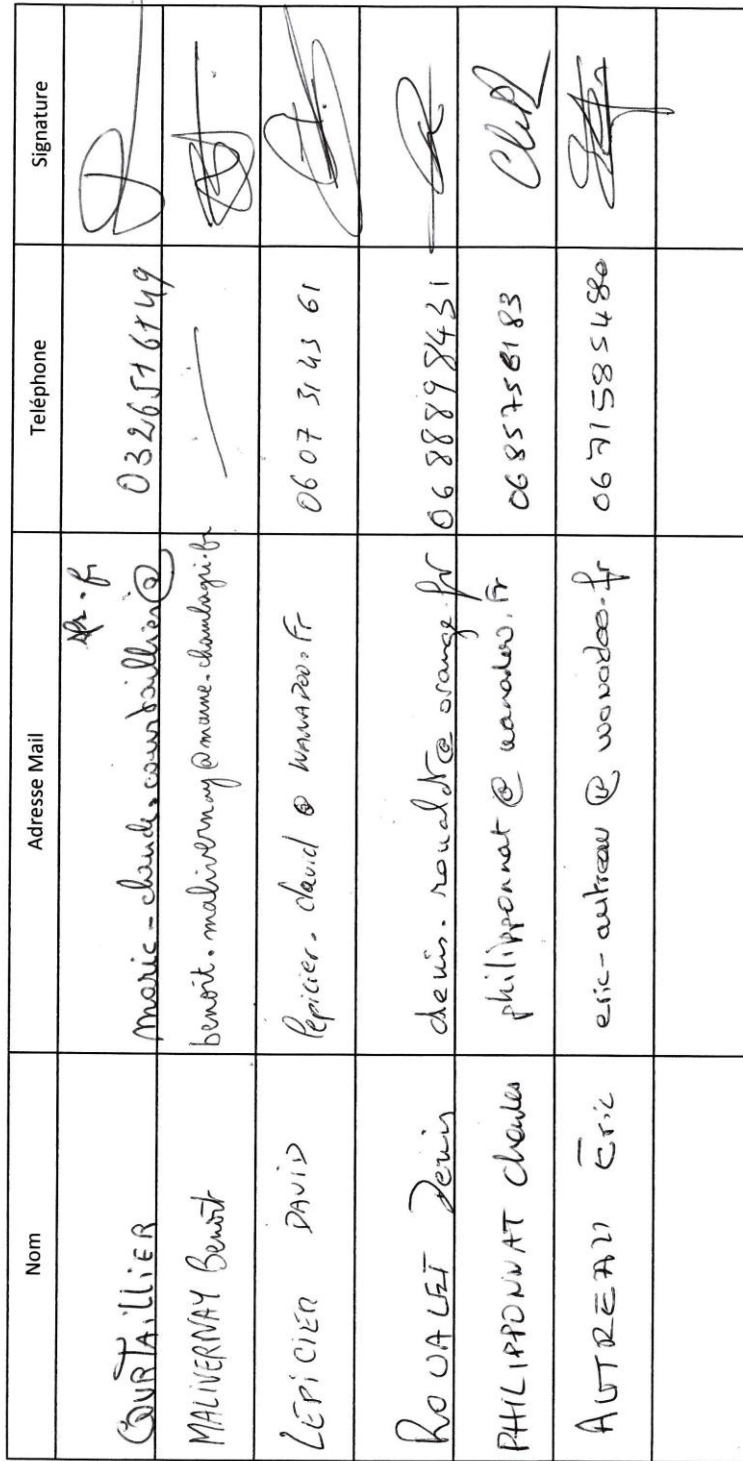 Nom Adresse Mail Teléphone Signature
COURTAILLIER marie-claude.courtaillier@ sfr.fr 0326516749
MALIVERNAY Benoît benoit.malivernay@marne.chambagri.fr
LEPICIER DAVID lepicier.david @ WANADOO.Fr 06 07 31 43 61
ROUALET Denis denis.roualet@orange.fr 0688898431
PHILIPPONNAT Charles philipponnat @ wanadoo.fr 0685756183
AUTREAU Eric eric-autreau @ wanadoo.fr